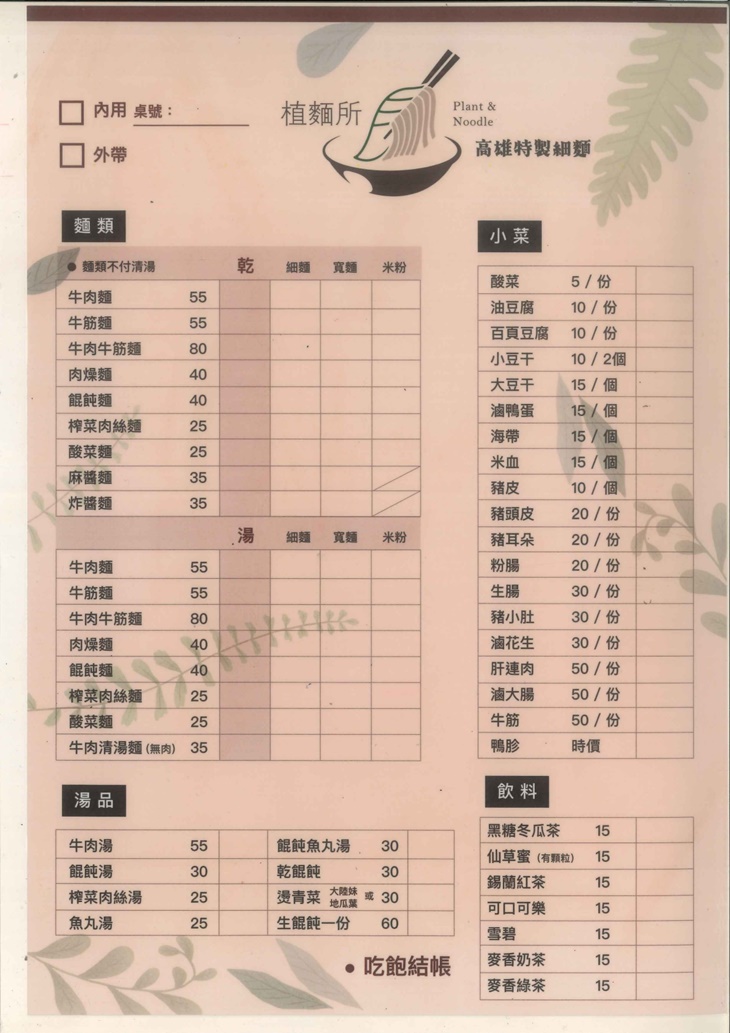 內用 桌號：
外帶
植麵所
Plant &
Noodle
高雄特製細麵
麵類
● 麵類不付清湯 乾 細麵 寬麵 米粉
牛肉麵 55
牛筋麵 55
牛肉牛筋麵 80
肉燥麵 40
餛飩麵 40
榨菜肉絲麵 25
酸菜麵 25
麻醬麵 35
炸醬麵 35
湯 細麵 寬麵 米粉
牛肉麵 55
牛筋麵 55
牛肉牛筋麵 80
肉燥麵 40
餛飩麵 40
榨菜肉絲麵 25
酸菜麵 25
牛肉清湯麵 (無肉) 35
小菜
酸菜 5 / 份
油豆腐 10 / 份
百頁豆腐 10 / 份
小豆干 10 / 2個
大豆干 15 / 個
滷鴨蛋 15 / 個
海帶 15 / 個
米血 15 / 個
豬皮 10 / 個
豬頭皮 20 / 份
豬耳朵 20 / 份
粉腸 20 / 份
生腸 30 / 份
豬小肚 30 / 份
滷花生 30 / 份
肝連肉 50 / 份
滷大腸 50 / 份
牛筋 50 / 份
鴨胗 時價
湯品
牛肉湯 55
餛飩湯 30
榨菜肉絲湯 25
魚丸湯 25
餛飩魚丸湯 30
乾餛飩 30
燙青菜 大陸妹 或 地瓜葉 30
生餛飩一份 60
● 吃飽結帳
飲料
黑糖冬瓜茶 15
仙草蜜 (有顆粒) 15
錫蘭紅茶 15
可口可樂 15
雪碧 15
麥香奶茶 15
麥香綠茶 15